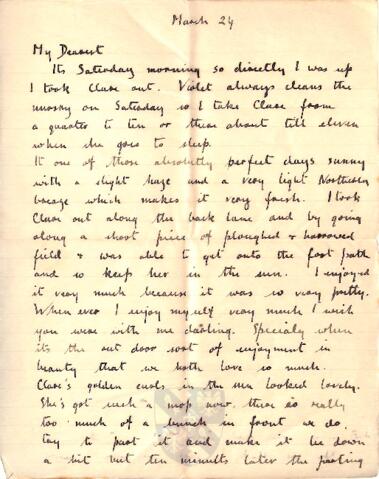 March 24
My Dearest
Its Saturday morning so directly I was up
I took Clare out. Violet always cleans the
nursery on Saturday so I take Clare from
a quarter to ten or there about till eleven
when she goes to sleep.
It one of those absolutely perfect days sunny
with a slight haze and a very light Northern
breeze which makes it very fresh. I took
Clare out along the back lane and by going
along a short piece of ploughed & harrowed
field & was able to get onto the foot path
and so keep her in the sun. I enjoyed
it very much because it was so very pretty.
When ever I enjoy myself very much I wish
you were with me darling. Specialy when
its the out door sort of enjoyment in
beauty that we both love so much.
Clare's golden curls in the sun looked lovely.
She's got such a mop now, there is really
too much of a bunch in front we do,
try to part it and make it lie down
a bit but ten minutes later the parting